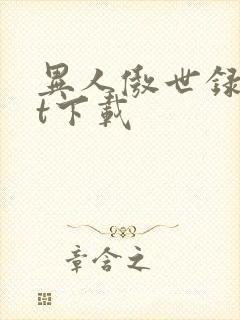 異人傲世録
t下載
章含之